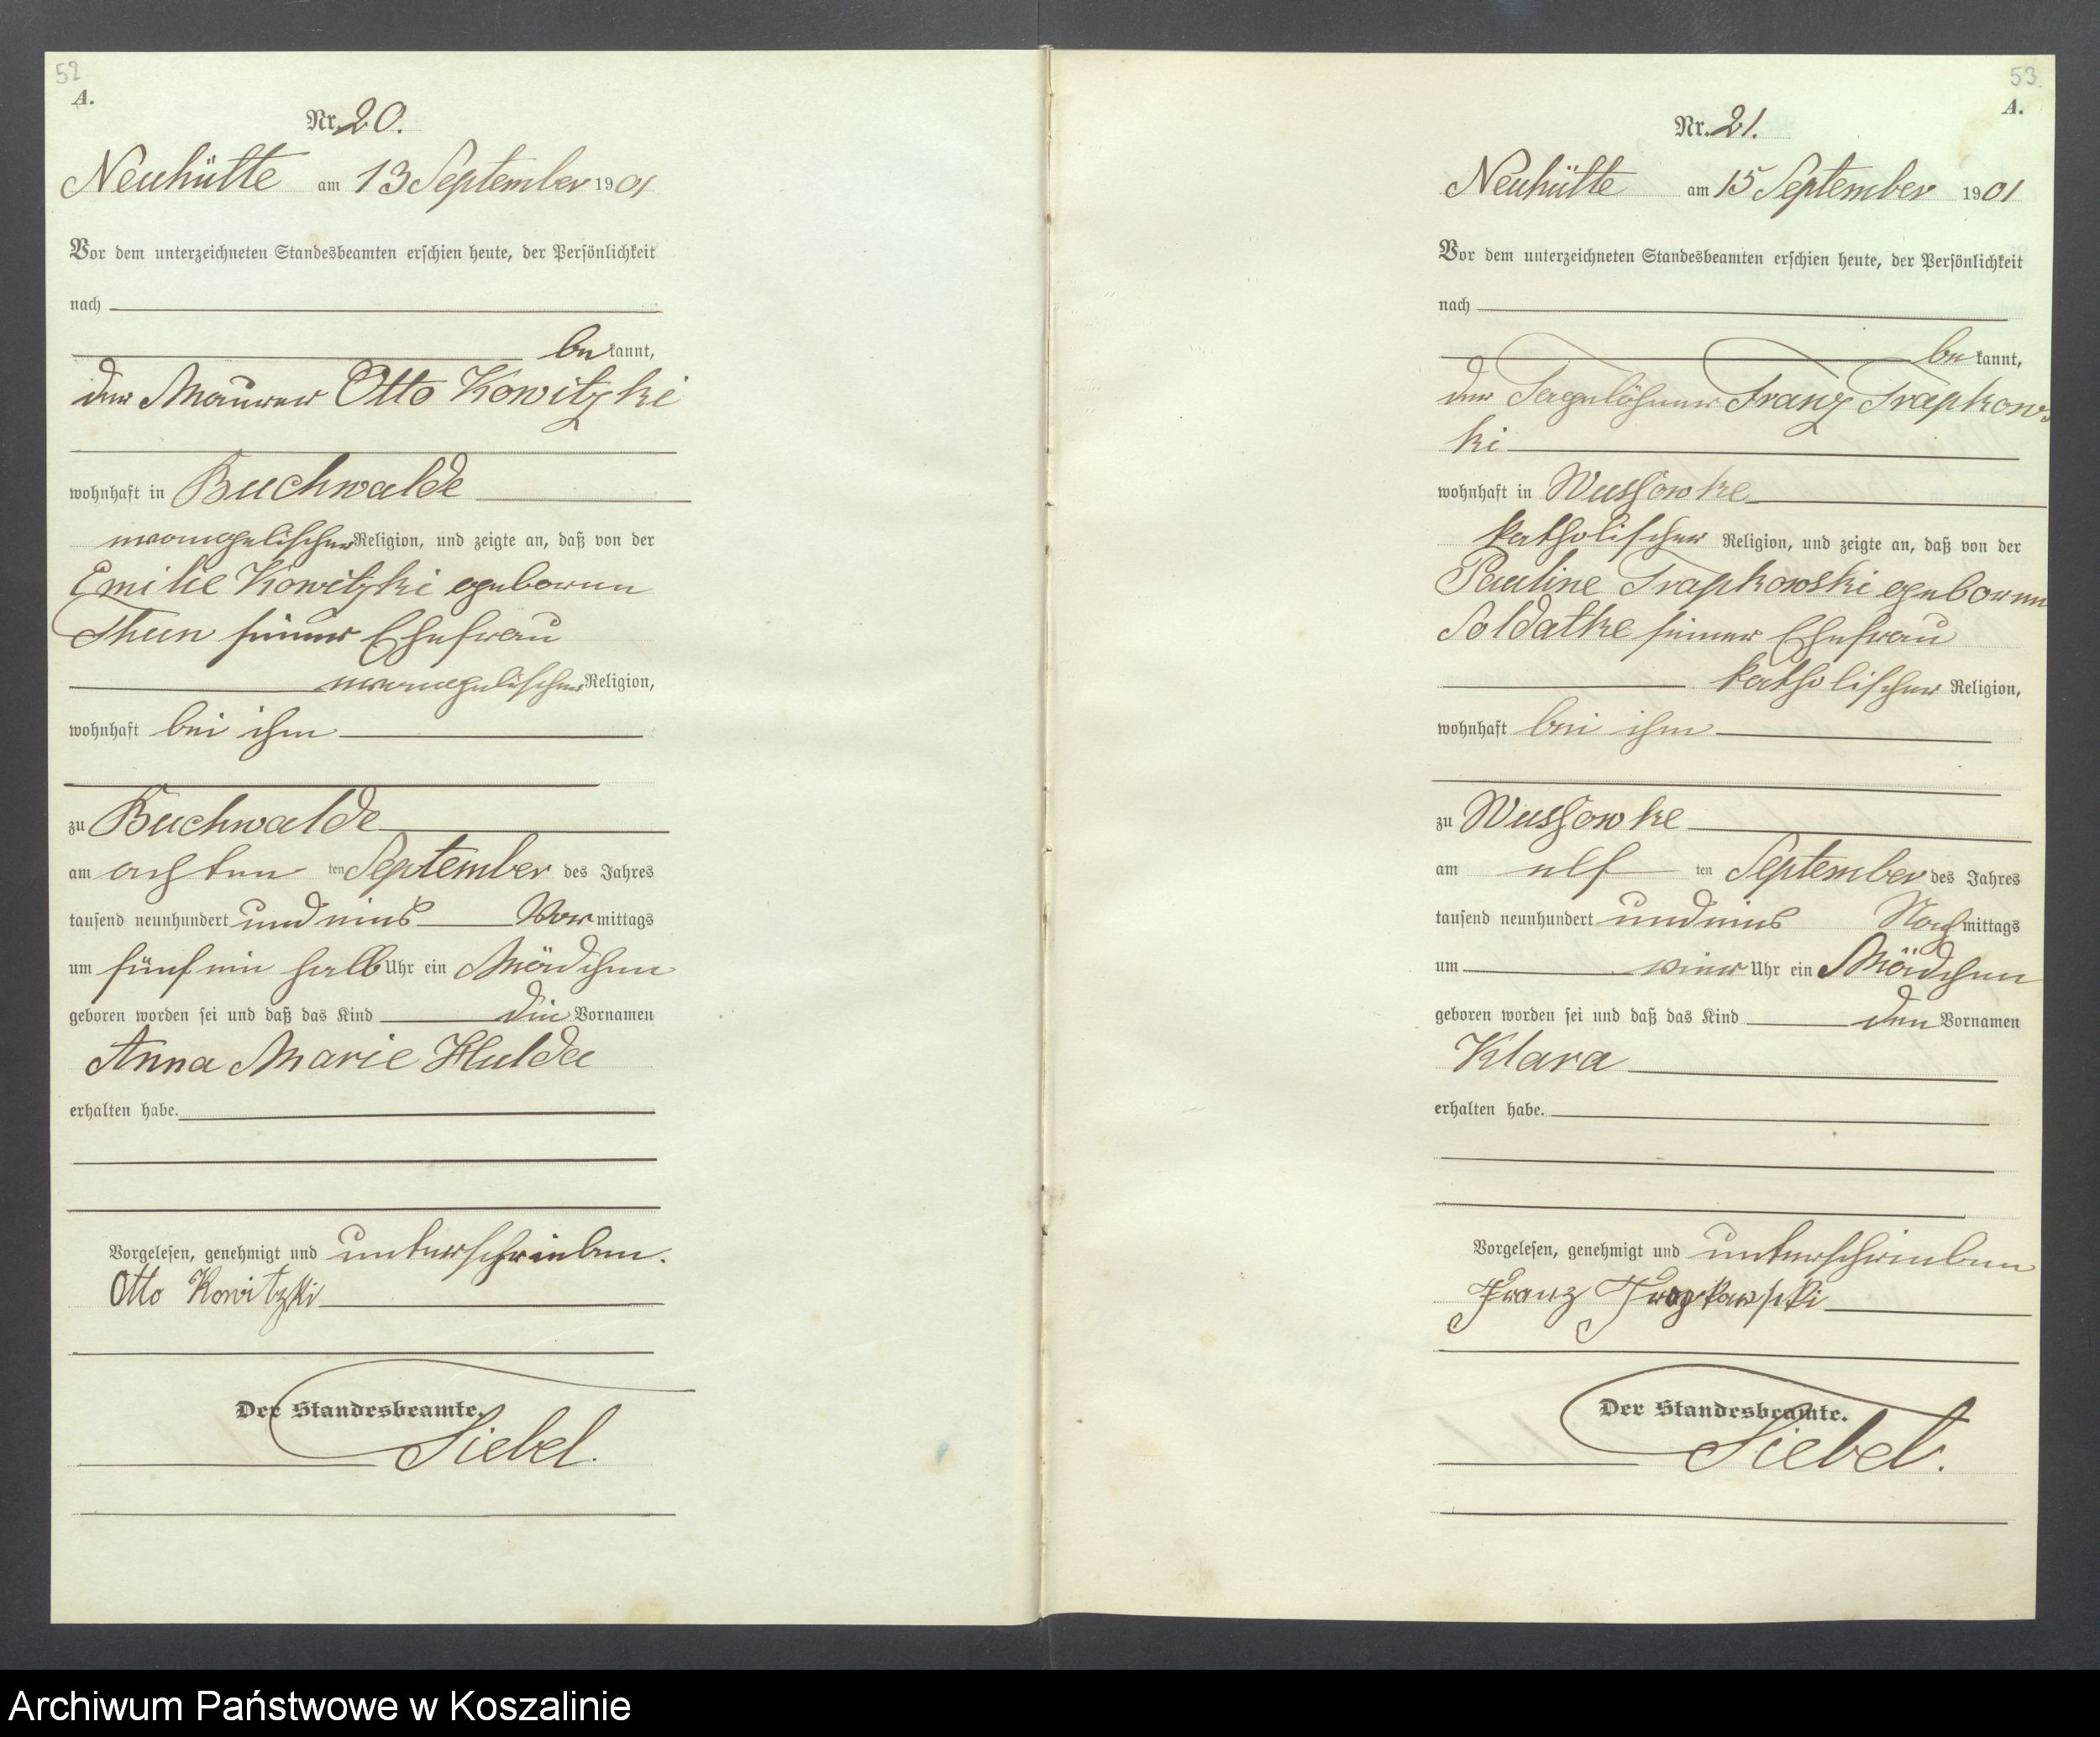 52
A.
Nr. 20.
Neuhütte am 13 September 1901
Vor dem unterzeichneten Standesbeamten erschien heute, der Persönlichkeit
nach
bekannt,
der Maurer Otto Kowitzki
wohnhaft in Buchwalde
evangelischer Religion, und zeigte an, daß von der
Emilie Kowitzki geborenen
Thun seiner Ehefrau
evangelischer Religion,
wohnhaft bei ihm
zu Buchwalde
am achten ten September des Jahres
tausend neunhundert und eins Vormittags
um fünf ein halb Uhr ein Mädchen
geboren worden sei und daß das Kind die Vornamen
Anna Marie Hulda
erhalten habe.
Vorgelesen, genehmigt und unterschrieben.
Otto Kowitzki
Der Standesbeamte.
Siebel.
53
A.
Nr. 21.
Neuhütte am 15 September 1901
Vor dem unterzeichneten Standesbeamten erschien heute, der Persönlichkeit
nach
bekannt,
der Tagelöhner Franz Trapkows
ki
wohnhaft in Wussowke
katholischer Religion, und zeigte an, daß von der
Pauline Trapkowski geborenen
Soldatke seiner Ehefrau
katholischer Religion,
wohnhaft bei ihm
zu Wussowke
am elf ten September des Jahres
tausend neunhundert und eins Nachmittags
um vier Uhr ein Mädchen
geboren worden sei und daß das Kind den Vornamen
Klara
erhalten habe.
Vorgelesen, genehmigt und unterschrieben
Franz Trapkowski
Der Standesbeamte.
Siebel.
Archiwum Państwowe w Koszalinie